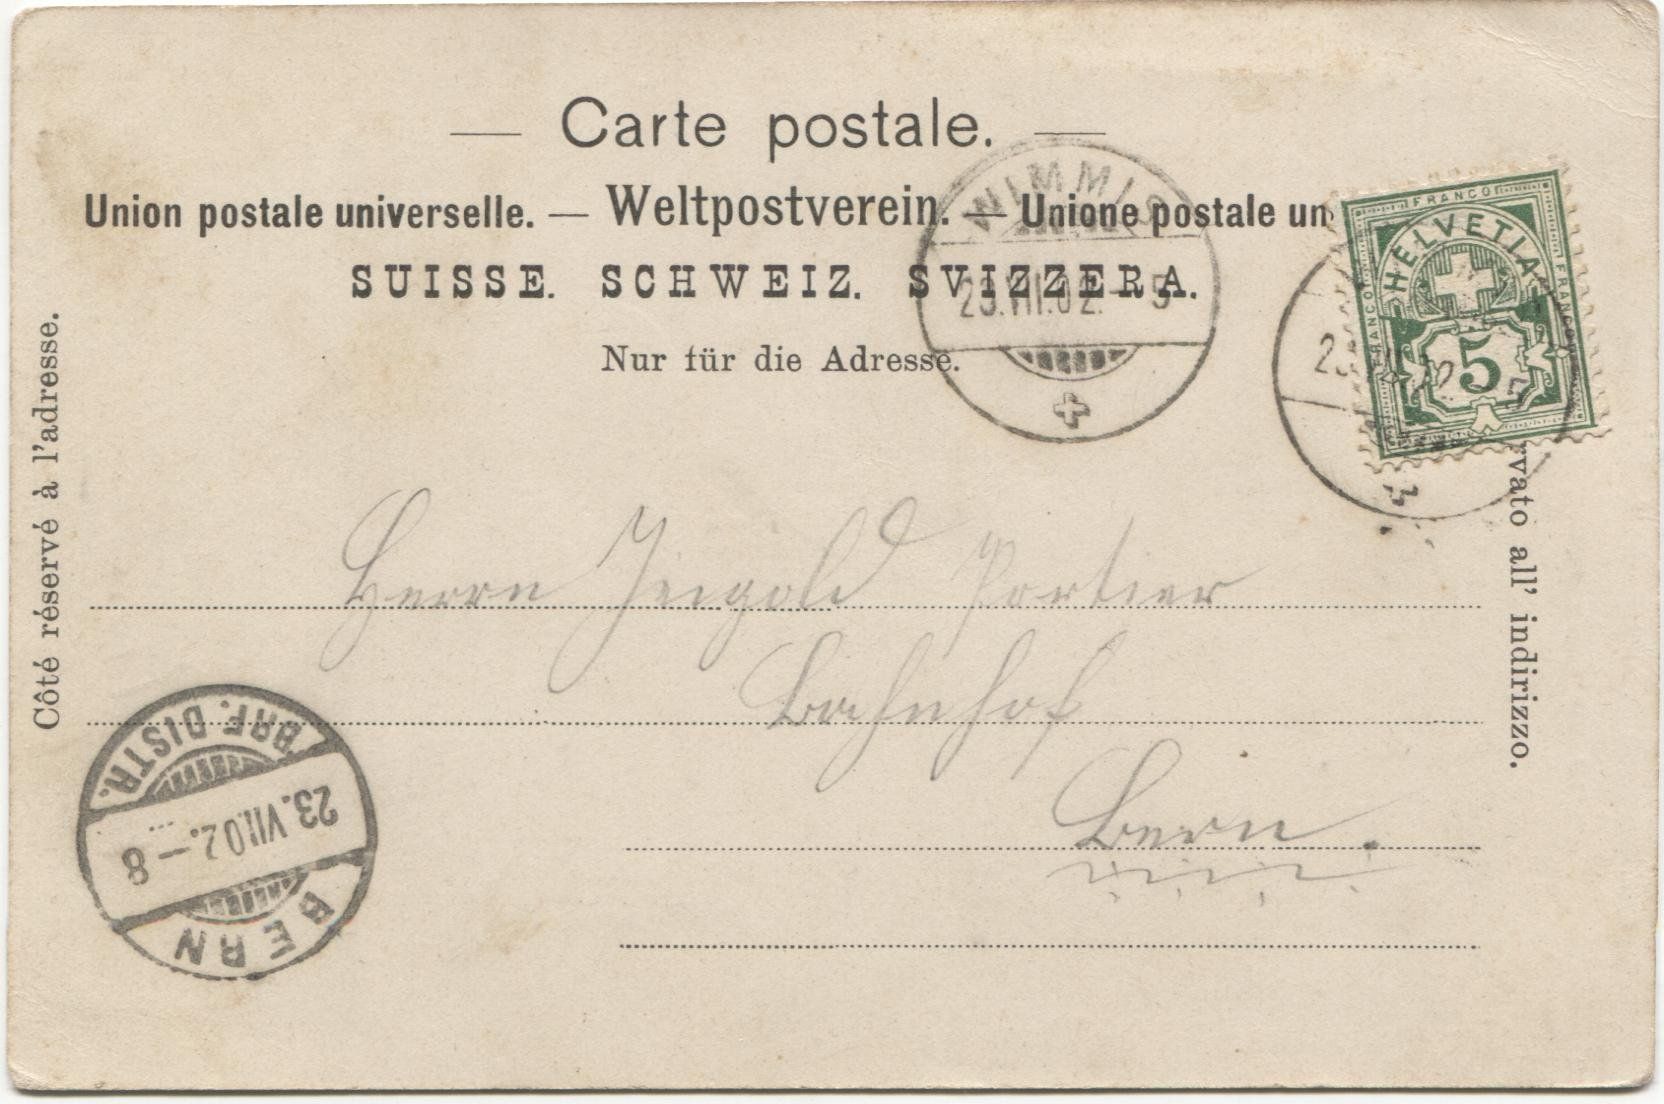 Carte postale.
Union postale universelle. — Weltpostverein. — Unione postale un
SUISSE. SCHWEIZ. SVIZZERA.
Nur für die Adresse.
Côté réservé à l'adresse.
rvato all' indirizzo.
WIMMIS
23.VII.02. - 5
FRANCO
HELVETIA
FRANCO
FRANCO
5
Herrn Portier
Bahnhof
Bern.
BRF. DISTR.
23.VII.02. - 8
BERN